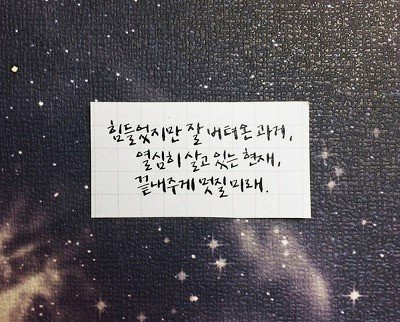 힘들었지만 잘 버텨온 과거,
열심히 살고 있는 현재,
끝내주게 멋질 미래.